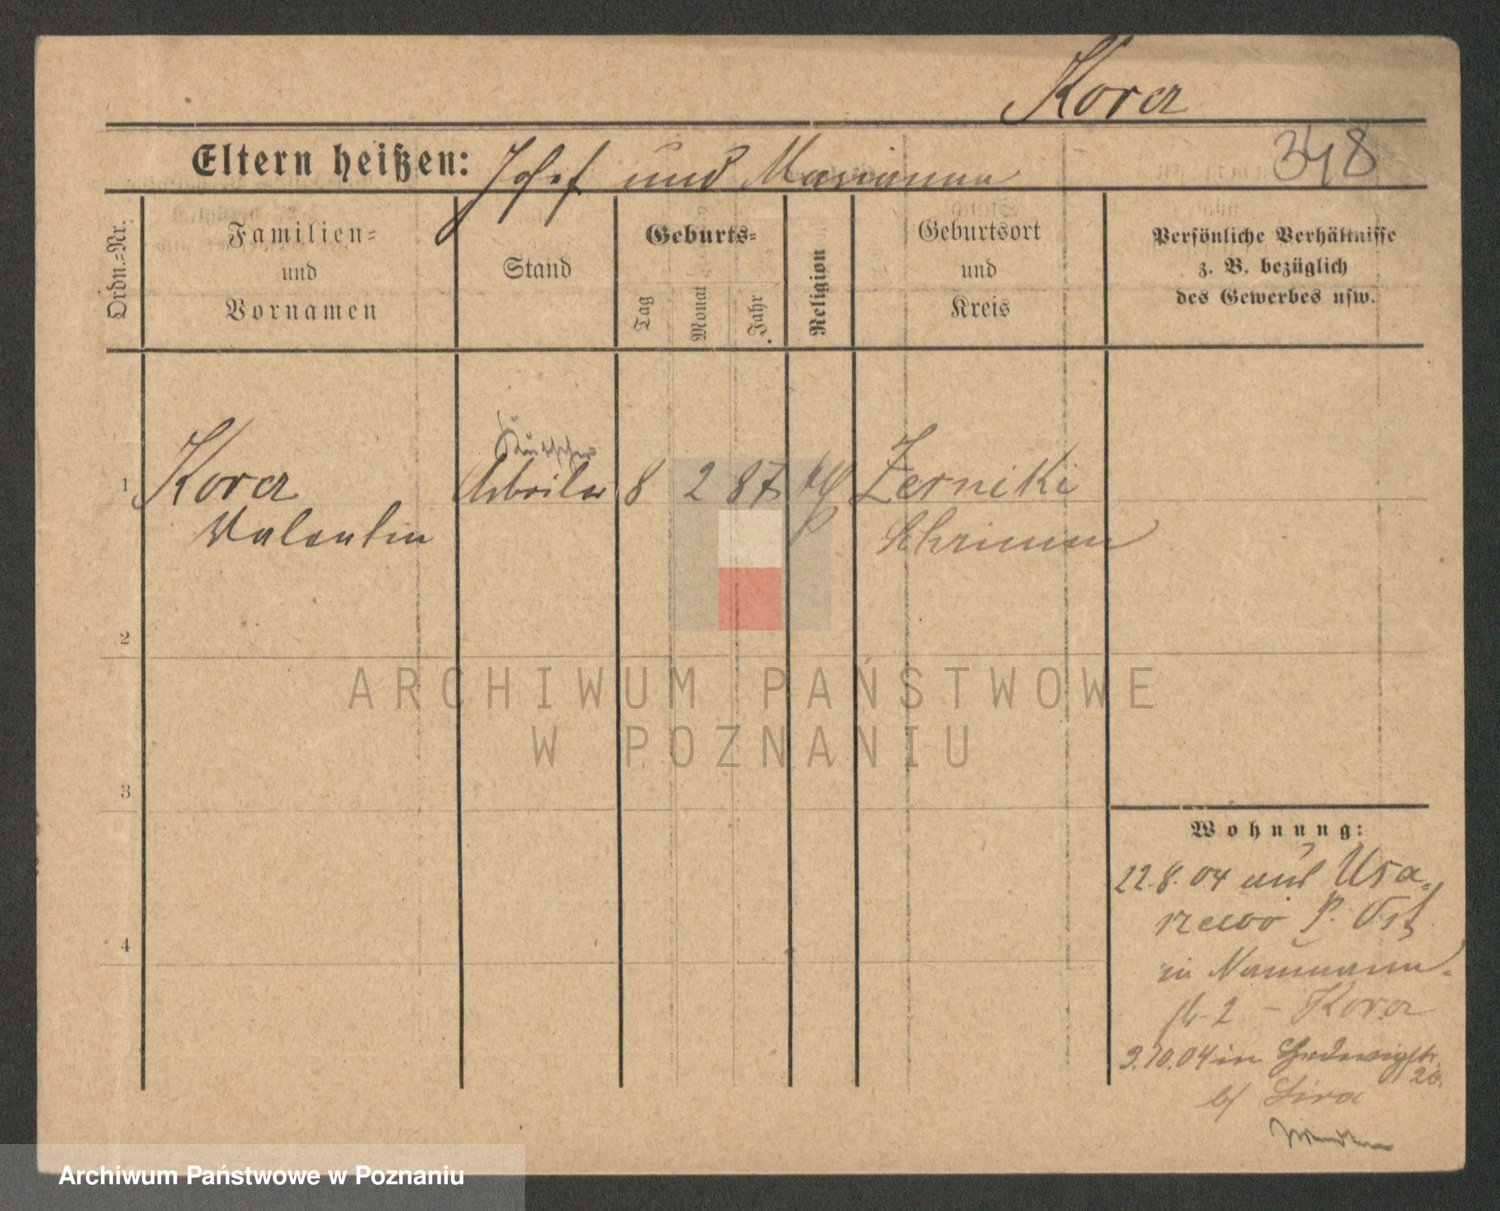 Kora
Eltern heißen: Josef und Marianna
348
Ordn.-Nr.
Familien-
und
Vornamen
Stand
Geburts-
Tag
Monat
Jahr
Religion
Geburtsort
und
Kreis
Persönliche Verhältnisse
z. B. bezüglich
des Gewerbes usw.
Kutscher
1 Kora Arbeiter 8 2 87 Zerniki
Valentin Schrimm
2
3
4
ARCHIWUM PAŃSTWOWE
W POZNANIU
Wohnung:
22.8.04 aus Usa-
rzewo P. Ost
in Naumann-
st 2 - Kora
3.10.04 in Hedwigstr.
20.
b/ Sira
Archiwum Państwowe w Poznaniu